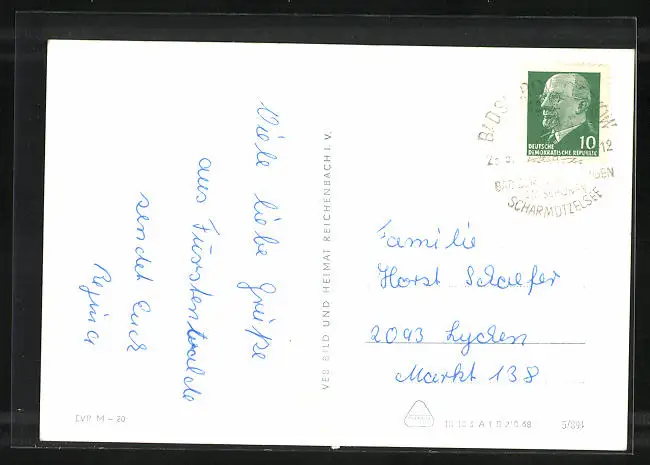 Viele liebe Grüße
aus Fürstenwalde
sendet Euch
Regina
VEB BILD UND HEIMAT REICHENBACH I. V.
10
DEUTSCHE
DEMOKRATISCHE REPUBLIK
12
SCHARMÜTZELSEE
Familie
Horst Schaefer
2093 Lychen
Markt 138
EVP M -20